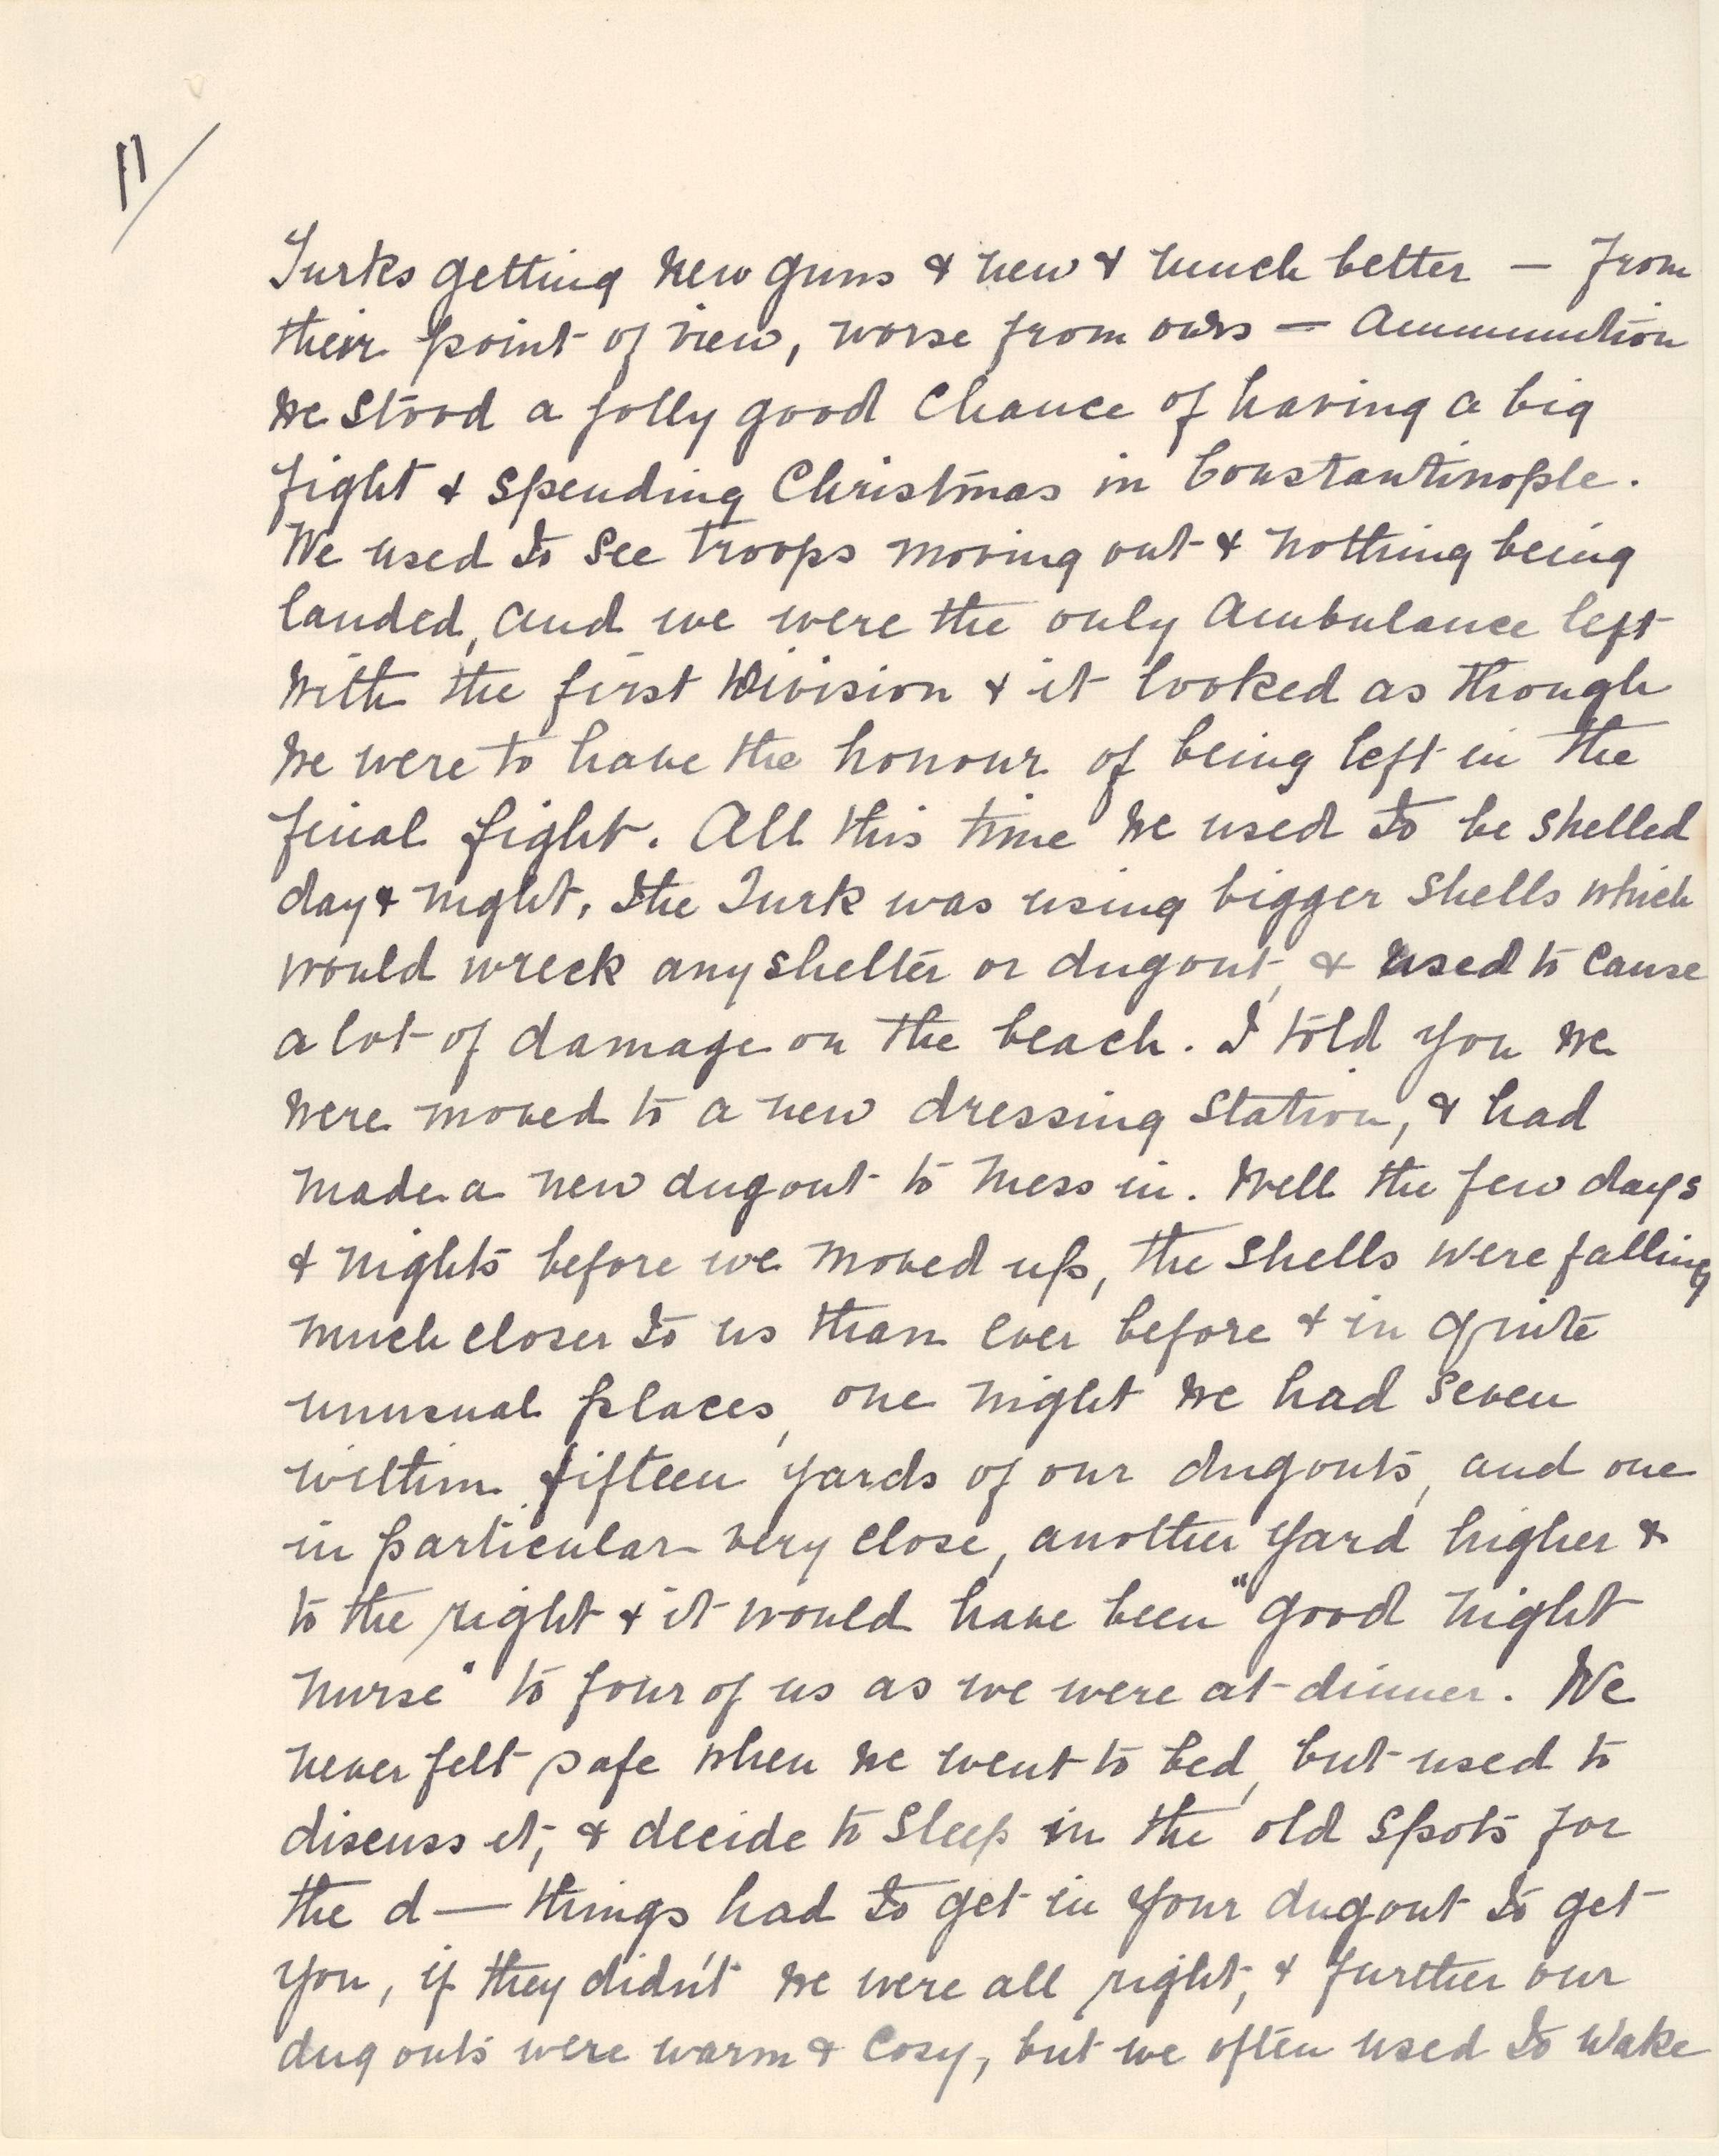 11/
Turks getting new guns & new & much better — from
their point of view, worse from ours — Ammunition
we stood a jolly good chance of having a big
fight & spending Christmas in Constantinople.
We used to see troops moving out & nothing being
landed, and we were the only Ambulance left
with the first Division & it looked as though
we were to have the honour of being left in the
final fight. All this time we used to be shelled
day & night, the Turk was using bigger shells which
would wreck any shelter or dugout, & used to cause
a lot of damage on the beach. I told you we
were moved to a new dressing station, & had
made a new dugout to mess in. Well the few days
& nights before we moved up, the shells were falling
much closer to us than ever before & in quite
unusual places, one night we had seven
within fifteen yards of our dugouts, and one
in particular very close, another yard higher &
to the right & it would have been "good night
nurse" to four of us as we were at dinner. We
never felt safe when we went to bed, but used to
discuss it, & decide to sleep in the old spots for
the d— things had to get in your dugout to get
you, if they didn't we were all right, & further our
dugouts were warm & cosy, but we often used to wake